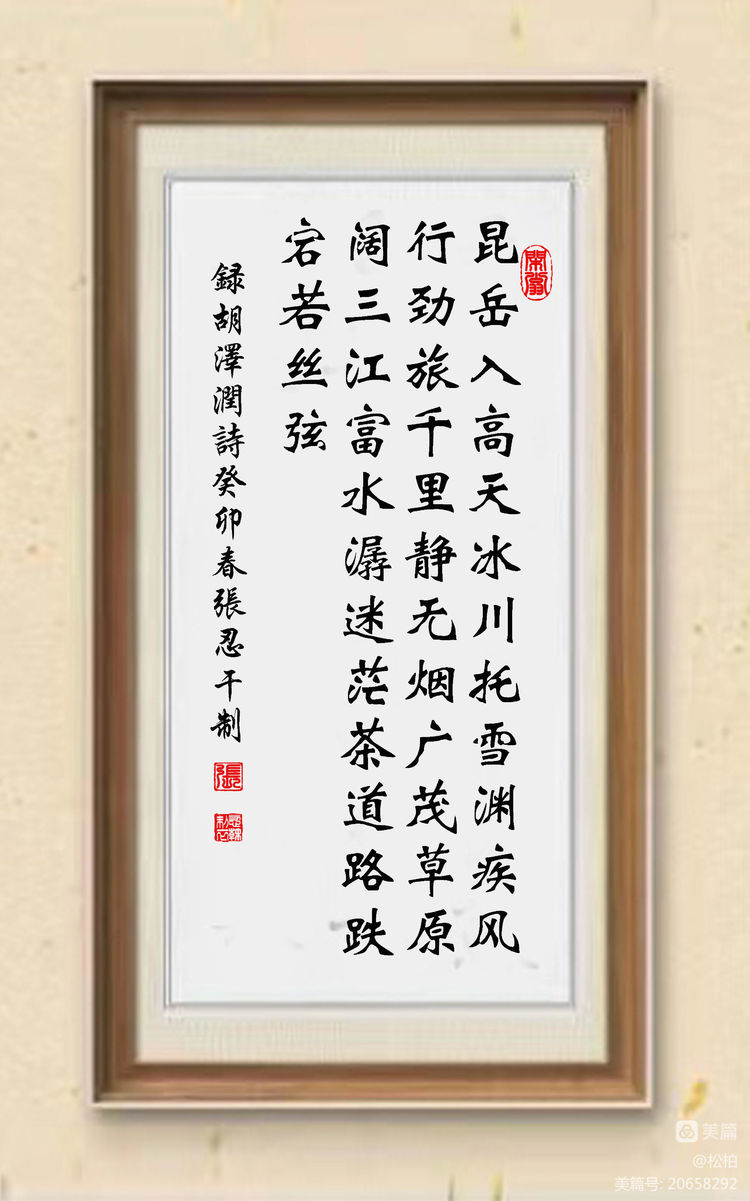 昆岳入高天冰川托雪渊疾风
行劲旅千里静无烟广茂草原
阔三江富水潺迷茫茶道路跌
宕若丝弦
録胡澤潤詩癸卯春張忍干制
張
美篇
@松柏
美篇号: 20658292